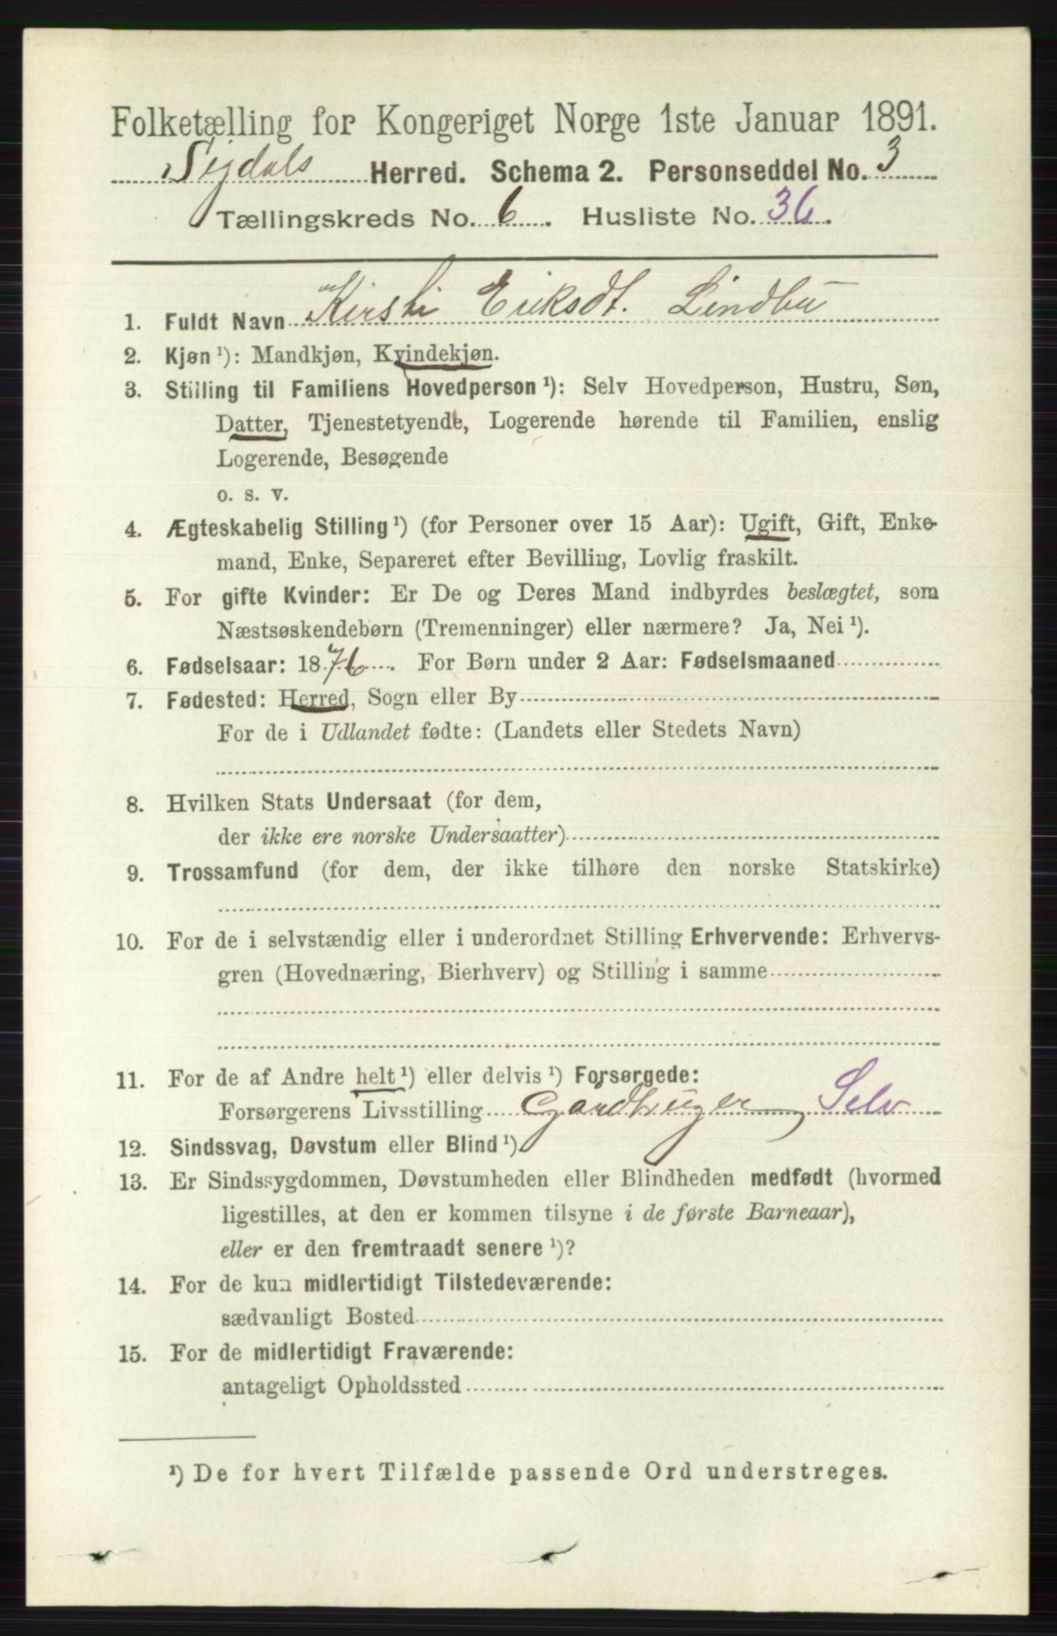 Folketælling for Kongeriget Norge 1ste Januar 1891.
Sigdals Herred. Schema 2. Personseddel No. 3
Tællingskreds No. 6. Husliste No. 36.
1. Fuldt Navn Kirsti Eriksdt. Lindbu
2. Kjøn ¹): Mandkjøn, Kvindekjøn.
3. Stilling til Familiens Hovedperson ¹): Selv Hovedperson, Hustru, Søn,
Datter, Tjenestetyende, Logerende hørende til Familien, enslig
Logerende, Besøgende
o. s. v.
4. Ægteskabelig Stilling ¹) (for Personer over 15 Aar): Ugift, Gift, Enke-
mand, Enke, Separeret efter Bevilling, Lovlig fraskilt.
5. For gifte Kvinder: Er De og Deres Mand indbyrdes beslægtet, som
Næstsøskendebørn (Tremenninger) eller nærmere? Ja, Nei ¹).
6. Fødselsaar: 1876. For Børn under 2 Aar: Fødselsmaaned
7. Fødested: Herred, Sogn eller By
For de i Udlandet fødte: (Landets eller Stedets Navn)
8. Hvilken Stats Undersaat (for dem,
der ikke ere norske Undersaatter)
9. Trossamfund (for dem, der ikke tilhøre den norske Statskirke)
10. For de i selvstændig eller i underordnet Stilling Erhvervende: Erhvervs-
gren (Hovednæring, Bierhverv) og Stilling i samme
11. For de af Andre helt ¹) eller delvis ¹) Forsørgede:
Forsørgerens Livsstilling Gårdbruger Selv
12. Sindssvag, Døvstum eller Blind ¹).
13. Er Sindssygdommen, Døvstumheden eller Blindheden medfødt (hvormed
ligestilles, at den er kommen tilsyne i de første Barneaar),
eller er den fremtraadt senere ¹)?
14. For de kun midlertidigt Tilstedeværende:
sædvanligt Bosted
15. For de midlertidigt Fraværende:
antageligt Opholdssted
¹) De for hvert Tilfælde passende Ord understreges.